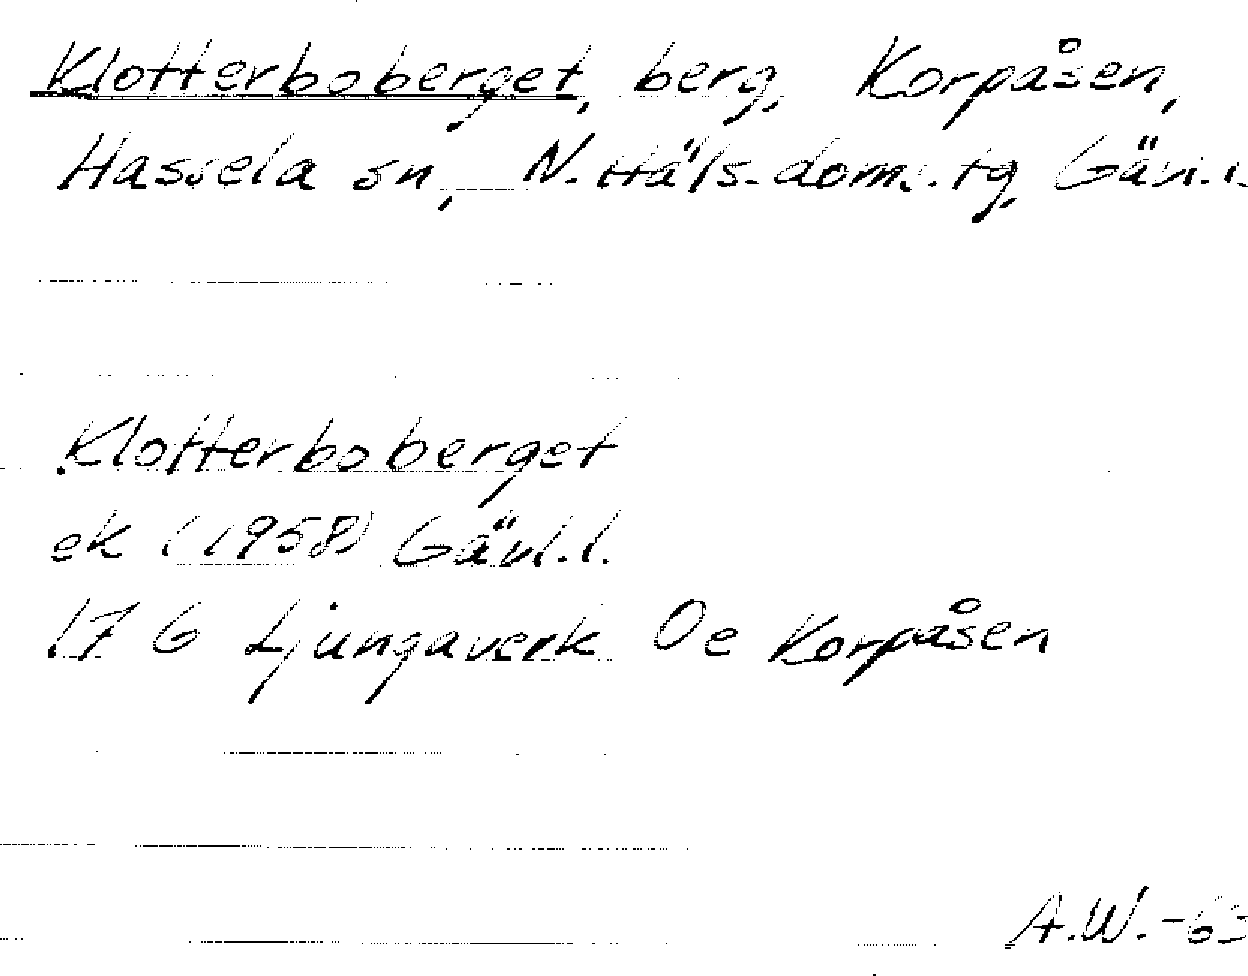 Klotterboberget, berg, Korpåsen,
Hassela sn, N. Häls. doms. tg, Gävl.l.
Klotterboberget
ek (1958) Gävl.l.
17 G Ljungaverk Oe Korpåsen
A.W.-63